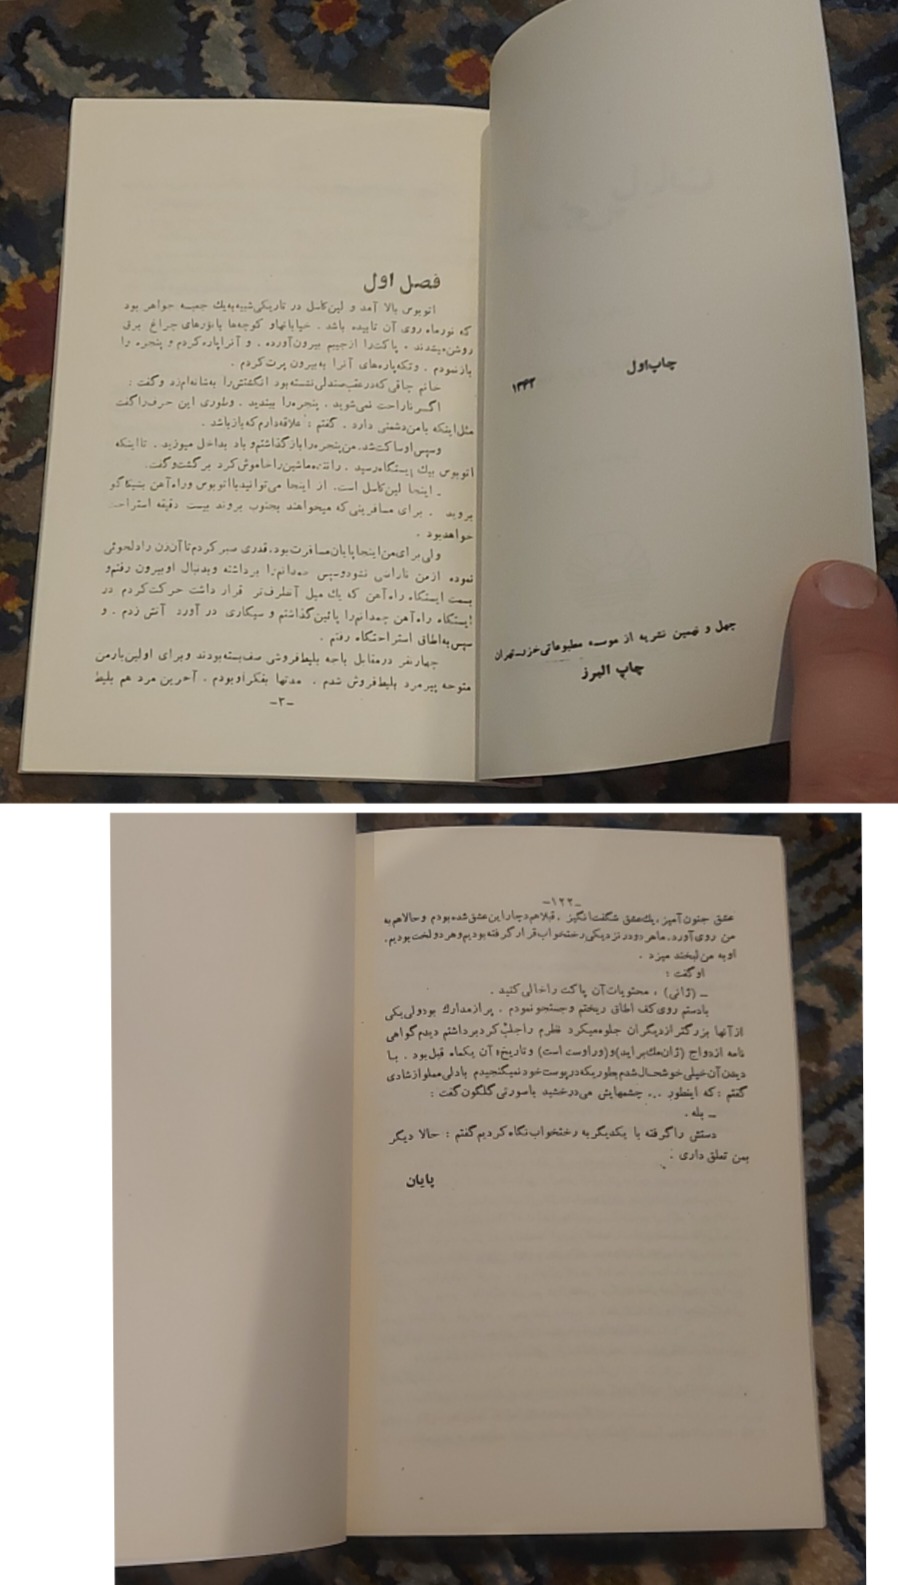 چاپ اول
۱۳۴۳
چهل و نهمین نشریه از موسسه مطبوعاتی خزر_تهران
چاپ البرز
فصل اول
اتوبوس بالا آمد و لین‌کاسل در تاریکی شبیه به یك جعبه جواهر بود
که نورماه روی آن تابیده باشد . خیابانها و کوچه‌ها با نورهای چراغ برق
روشن میشدند . پاکت را از جیبم بیرون آورده . و آنرا پاره کردم و پنجره را
باز نمودم . وتکه پاره‌های آنرا به بیرون پرت کردم .
خانم چاقی که در عقب صندلی نشسته بود انگشتش را به شانه‌ام زد و گفت :
اگر ناراحت نمی‌شوید . پنجره را ببندید . وطوری این حرف را گفت
مثل اینکه بامن دشمنی دارد . گفتم : علاقه دارم که باز باشد .
وسپس او ساکت شد. من پنجره را باز گذاشتم و باد بداخل میوزید . تا اینکه
اتوبوس بیك ایستگاه رسید . راننده ماشین را خاموش کرد برگشت وگفت.
ـ اینجا لین‌کاسل است. از اینجا می‌توانید با اتوبوس وراه آهن بشیکاگو
بروید . برای مسافرینی که میخواهند بجنوب بروند بیست دقیقه استراحت
خواهد بود .
ولی برای من اینجا پایان مسافرت بود، قدری صبر کردم تا آن زن را دلجوئی
نموده از من ناراضی نشود وسپس چمدانم را برداشته وبدنبال او بیرون رفتم و
بسمت ایستگاه راه آهن که یك میل آنطرف‌تر قرار داشت حرکت کردم در
ایستگاه راه آهن چمدانم را پائین گذاشتم و سیگاری در آورد آتش زدم . و
سپس به اطاق استراحتگاه رفتم .
چهار نفر در مقابل باجه بلیط فروشی صف بسته بودند وبرای اولین بار من
متوجه پیرمرد بلیط فروش شدم . مدتها بفکر او بودم . آخرین مرد هم بلیط
-۳-
-۱۲۲-
عشق جنون آمیز، یك عشق شگفت انگیز . قبلا هم دچار این عشق شده بودم و حالا هم به
من روی آورد، ما هر دو در نزدیکی رختخواب قرار گرفته بودیم و هر دو لخت بودیم.
او به من لبخند میزد .
او گفت :
ـ (ژانی) ، محتویات آن پاکت را خالی کنید .
بادستم روی کف اطاق ریختم و جستجو نمودم . پر از مدارك بود ولی یکی
از آنها بزرگتر از دیگران جلوه میکرد نظرم را جلب کرد برداشتم دیدم گواهی
نامه ازدواج (ژان مك براید) و (ورا وست است) و تاریخ آن یکماه قبل بود . با
دیدن آن خیلی خوشحال شدم بطوریکه در پوست خود نمیگنجیدم با دلی مملو از شادی
گفتم : که اینطور ... چشمهایش می‌درخشید باصورتی گلگون گفت :
ـ بله .
دستش را گرفته با یکدیگر به رختخواب نگاه کردیم گفتم : حالا دیگر
بمن تعلق داری .
پایان